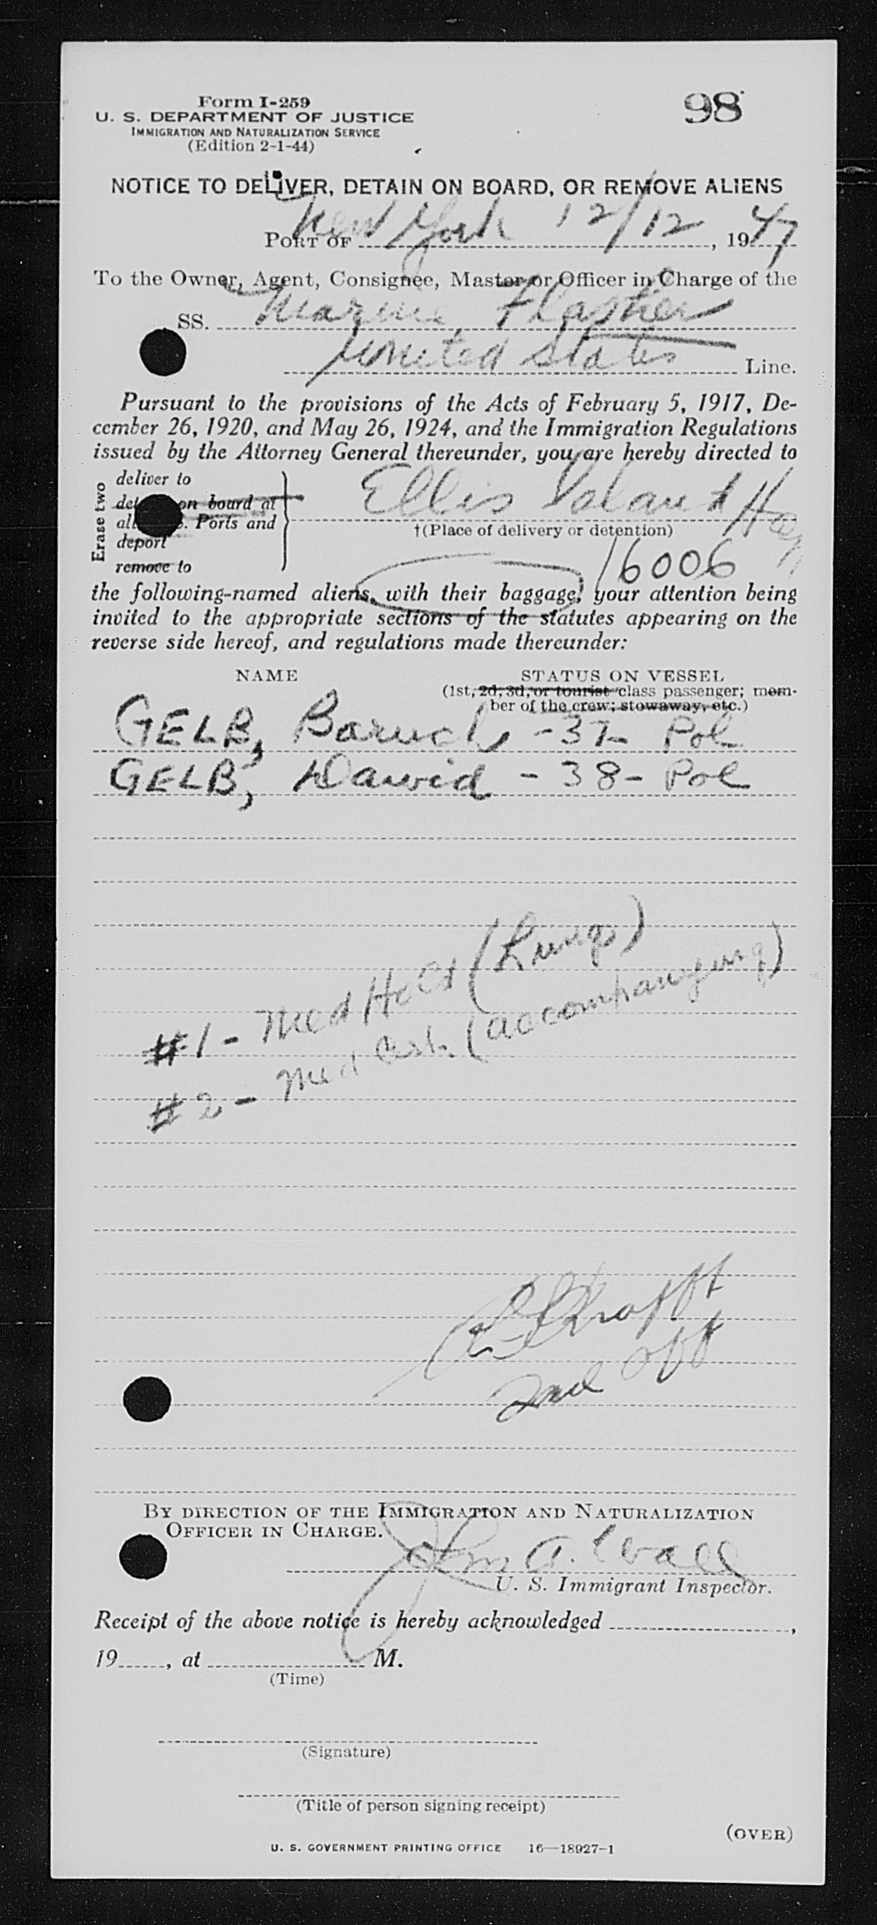 Form I-259
98
U. S. DEPARTMENT OF JUSTICE
IMMIGRATION AND NATURALIZATION SERVICE
(Edition 2-1-44)
NOTICE TO DELIVER, DETAIN ON BOARD, OR REMOVE ALIENS
PORT OF New York 12/12, 1947
To the Owner, Agent, Consignee, Master or Officer in Charge of the
SS. Marine Flasher
United States Line.
Pursuant to the provisions of the Acts of February 5, 1917, De-
cember 26, 1920, and May 26, 1924, and the Immigration Regulations
issued by the Attorney General thereunder, you are hereby directed to
Erase two
deliver to
on board at
Ports and
deport
remove to
Ellis Island
†(Place of delivery or detention)
16006
the following-named aliens, with their baggage, your attention being
invited to the appropriate sections of the statutes appearing on the
reverse side hereof, and regulations made thereunder:
NAME STATUS ON VESSEL
(1st, 2d, 3d, or tourist class passenger; mem-
ber of the crew; stowaway, etc.)
GELB, Baruch - 37 - Pol
GELB, Dawid - 38 - Pol
#1 - Med Held (Lungs)
#2 - Med Cert. (accompanying)
2nd Off
BY DIRECTION OF THE IMMIGRATION AND NATURALIZATION
OFFICER IN CHARGE.
John A. Wall
U. S. Immigrant Inspector.
Receipt of the above notice is hereby acknowledged ,
19 , at M.
(Time)
(Signature)
(Title of person signing receipt)
(OVER)
U. S. GOVERNMENT PRINTING OFFICE 16—18927-1